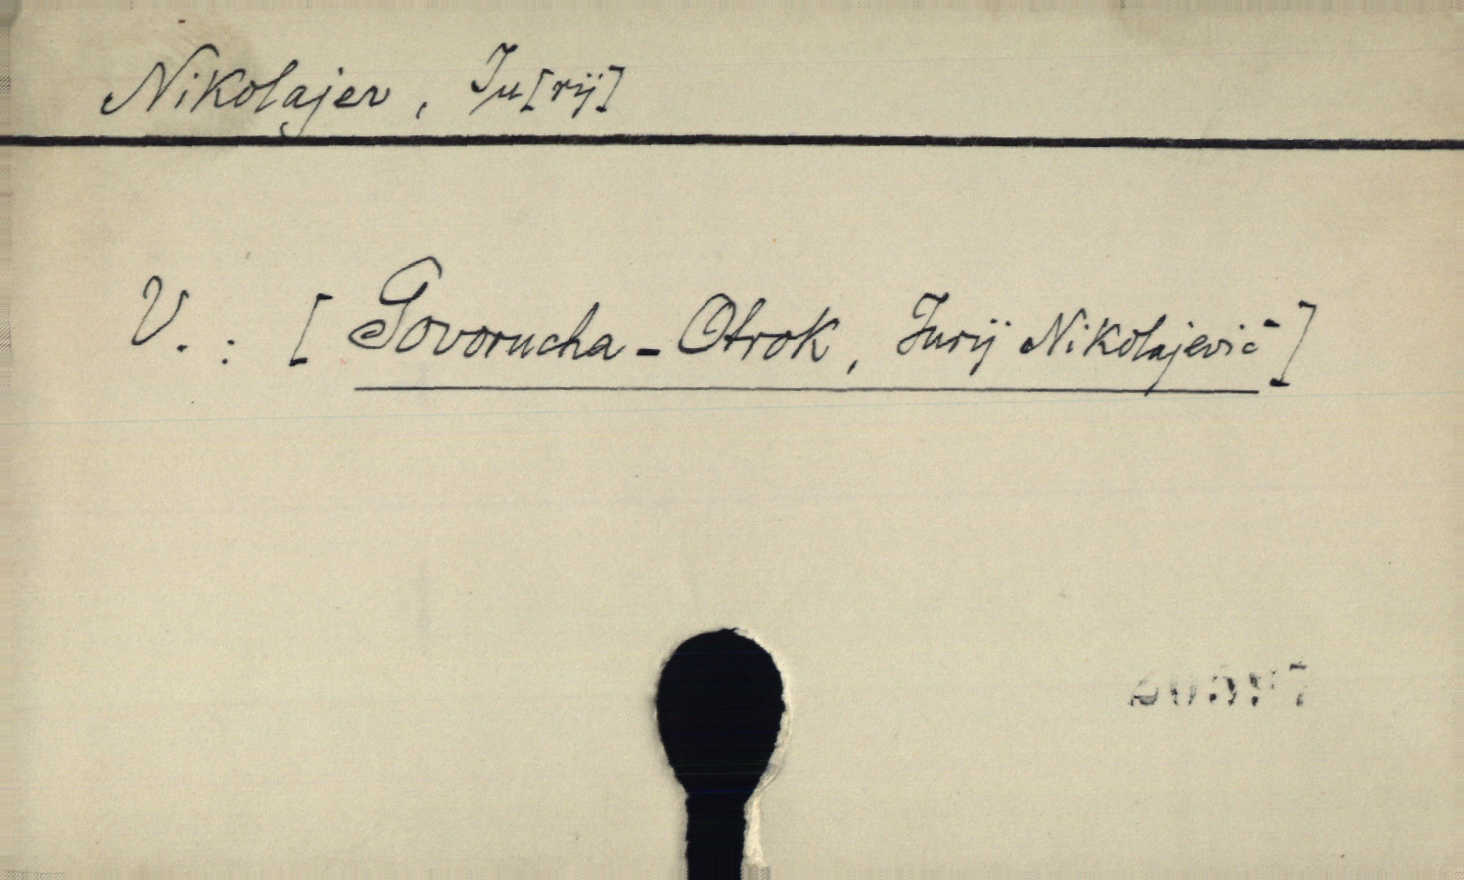 Nikolajev, Ju[rij]
V.: [Govorucha-Otrok, Jurij Nikolajevič]